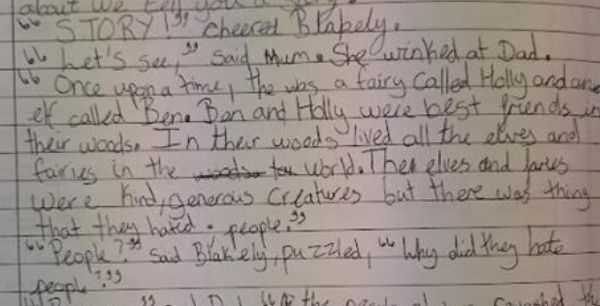 about we tell you a story
"STORY!" cheered Blakely.
"Let's see," said Mum. She winked at Dad.
"Once upon a time, the was a fairy called Holly and an
elf called Ben. Ban and Holly were best friends in
their woods. In their woods lived all the elves and
fairies in the world. Thes elves and faries
were kind, generous creatures but there was thing
that they hated. people."
"People?" said Blakely, puzzled, "Why did they hate
people?"
the